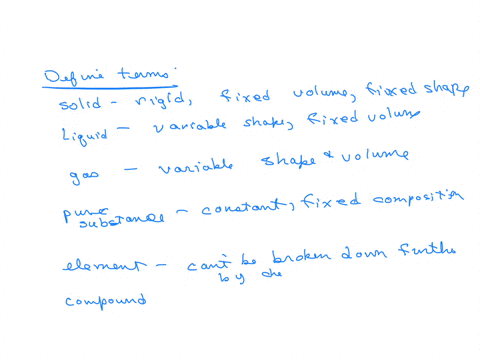 Define terms:
solid - rigid, fixed volume, fixed shape
Liquid - variable shape, fixed volume
gas - variable shape & volume
pure substance - constant, fixed composition
element - can't be broken down furthe
by che
compound